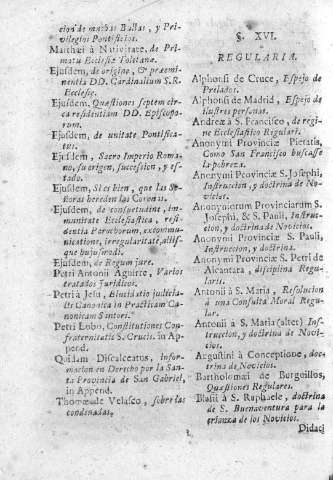 cion de muchas Bullas, y Pri-
vilegios Pontificios.
Matthæi à Nativitate, de Pri-
matu Ecclesiæ Toletanæ.
Ejusdem, de origine, & præemi-
nentia DD. Cardinalium S.R.
Ecclesiæ.
Ejusdem, Quæstiones septem cir-
ca residentiam DD. Episcopo-
rum.
Ejusdem, de unitate Pontifica-
tus.
Ejusdem, Sacro Imperio Roma-
no, su origen, succession, y es-
tado.
Ejusdem, Si es bien, que las Se-
ñoras hereden las Coronas.
Ejusdem, de consuetudine, im-
munitate Ecclesiastica, resi-
dentia Parochorum, excommu-
nicatione, irregularitate, aliis-
que hujusmodi.
Ejusdem, de Regum jure.
Petri Antonii Aguirre, Varios
tratados Juridicos.
Petri à Jesu, Elucidatio judicia-
te Canonica in Practicam Ca-
nonicam Santori.
Petri Lobo, Constitutiones Con-
fraternitatis S. Crucis. in Ap-
pend.
Quidam Discalceatus, infor-
macion en Derecho por la San-
ta Provincia de San Gabriel,
in Append.
Thomæ de Velasco, sobre las
condenadas.
§. XVI.
REGULARIA.
Alphonsi de Cruce, Espejo de
Prelados.
Alphonsi de Madrid, Espejo de
ilustres personas.
Andreæ à S. Francisco, de regi-
ne Ecclesiastico Regulari.
Anonymi Provinciæ Pietatis,
Como San Francisco buscasse
la pobreza.
Anonymi Provinciæ S. Josephi,
Instruccion, y doctrina de No-
vicios.
Anonymorum Provinciarum S.
Josephi, & S. Pauli, Instruc-
cion, y doctrina de Novicios.
Anonymi Provinciæ S. Pauli,
Instruccion, y doctrina.
Anonymi Provinciæ S. Petri de
Alcantara, disciplina Regu-
laris.
Antonii à S. Maria, Resolucion
à una Consulta Moral Regu-
lar.
Antonii à S. Maria (alter) Ins-
truccion, y doctrina de Novi-
cios.
Augustini à Conceptione, doc-
trina de Novicios.
Bartholomæi de Burguillos,
Quæstiones Regulares.
Blasii à S. Raphaele, doctrina
de S. Buenaventura para la
crianza de los Novicios.
Didaci